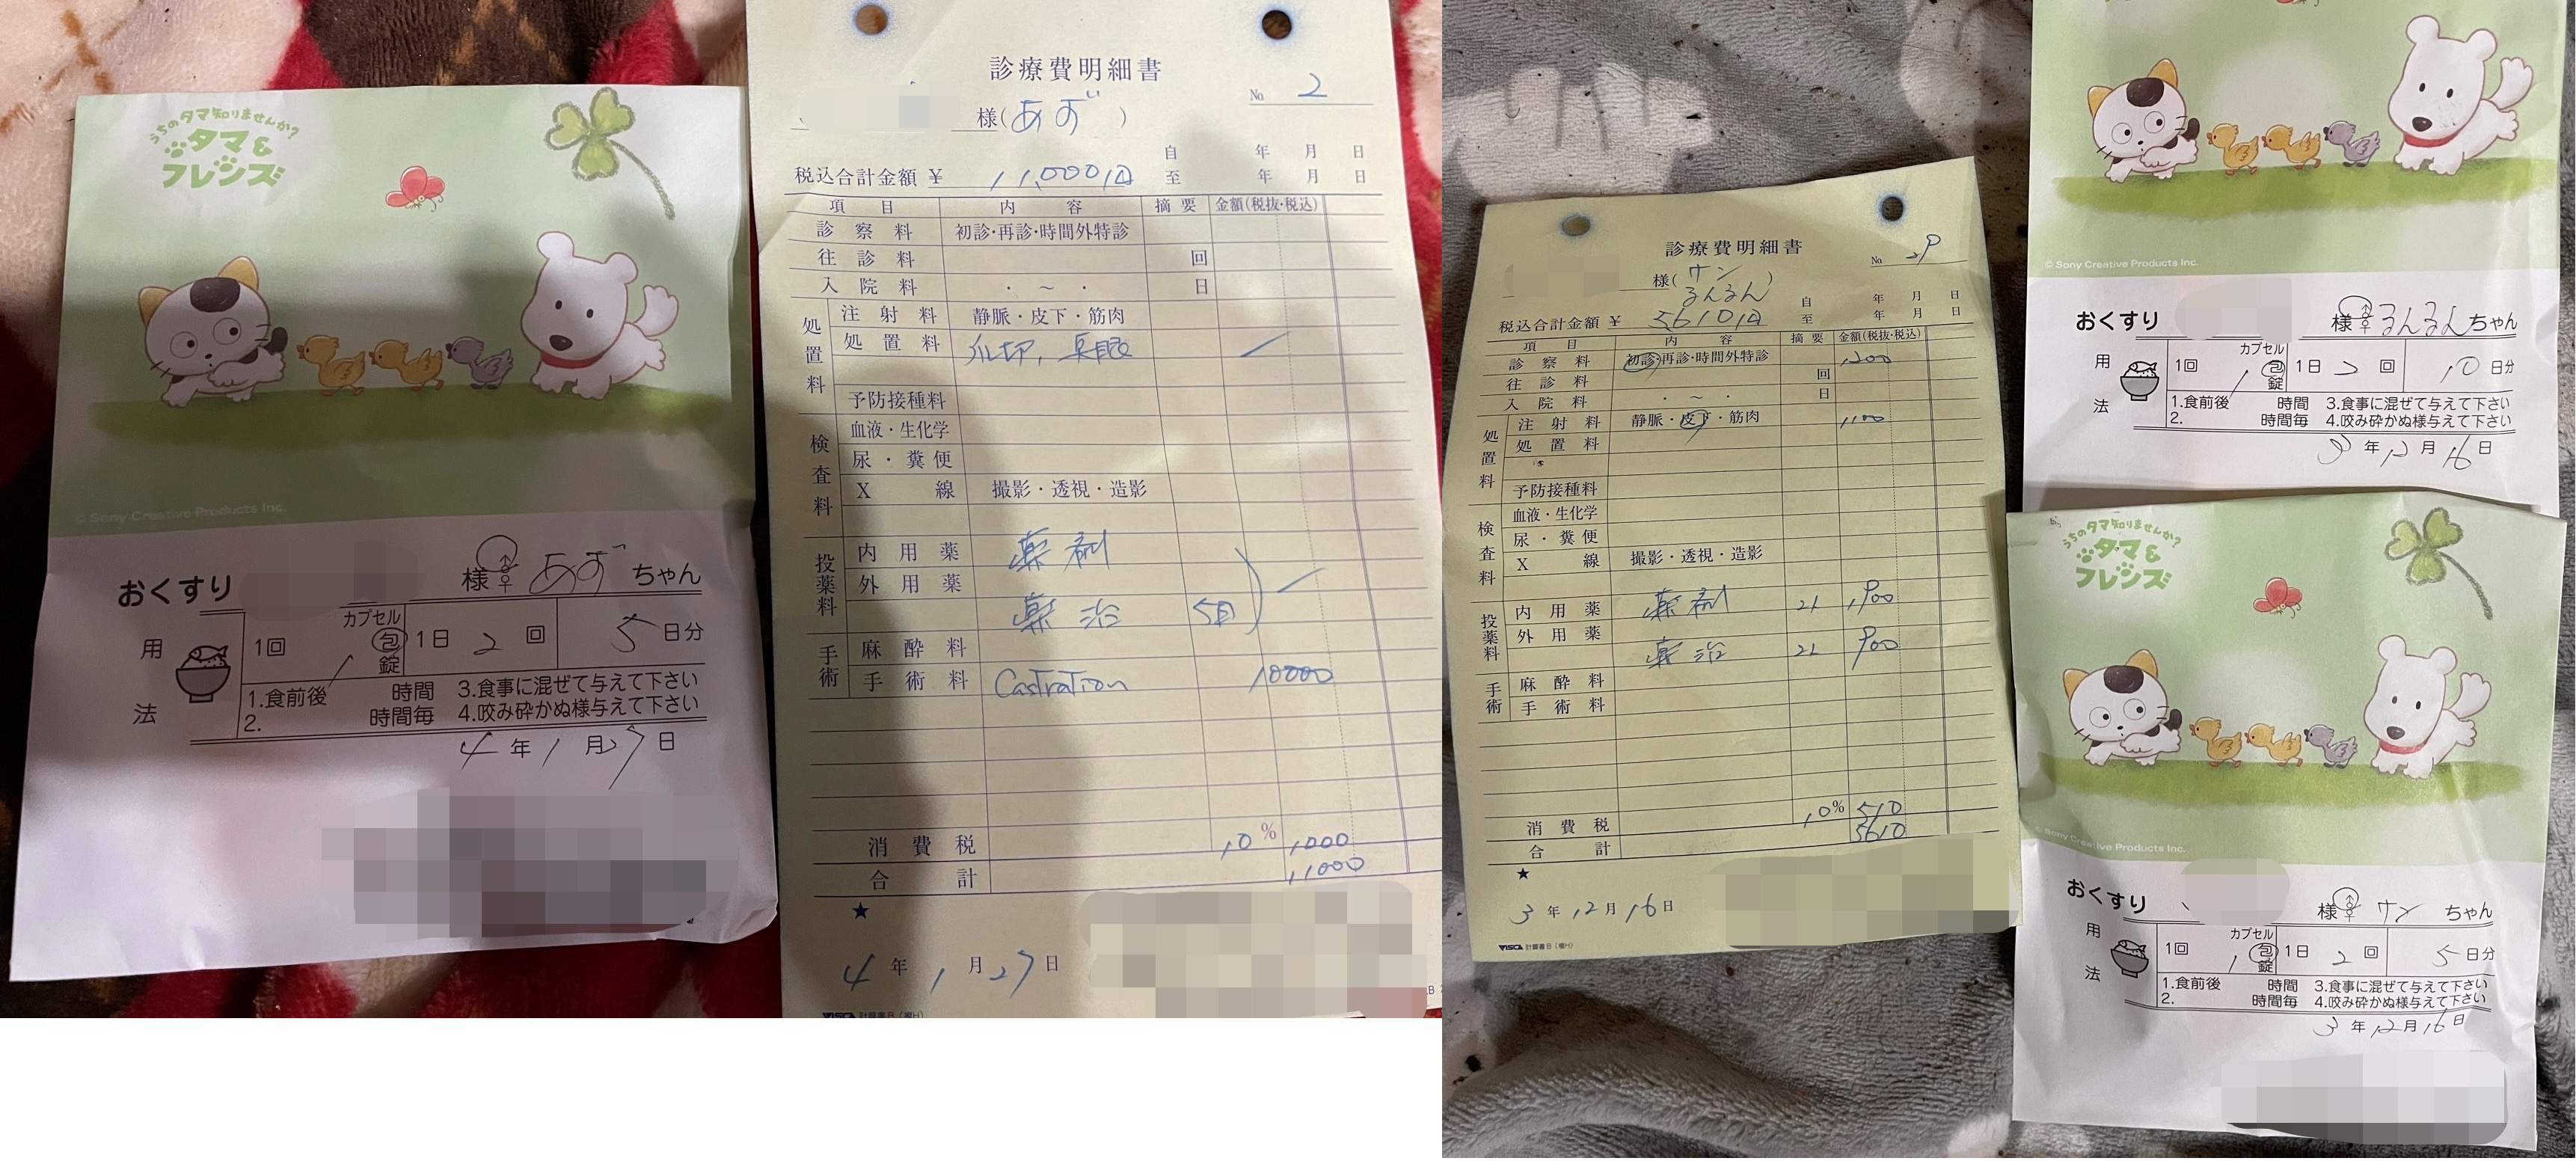 うちのタマ知りませんか?
タマ&
フレンズ
© Sony Creative Products Inc.
おくすり 様 ♂♀ あず ちゃん
用法
1回 カプセル 包 錠 1日 2 回 5 日分
1.食前後 時間 3.食事に混ぜて与えて下さい
2. 時間毎 4.咬み砕かぬ様与えて下さい
4 年 1 月 27 日
診療費明細書
No. 2
様(あず)
税込合計金額 ¥ 11,000円
自 年 月 日
至 年 月 日
項目 内容 摘要 金額(税抜・税込)
診察料 初診・再診・時間外特診
往診料 回
入院料 ・ ~ ・ 日
処置料
注射料 静脈・皮下・筋肉
処置料 爪切,
予防接種料
検査料
血液・生化学
尿・糞便
X線 撮影・透視・造影
投薬料
内用薬 薬剤
外用薬
薬治 5日
手術
麻酔料
手術料 Castration 10000
消費税 10% 1,000
合計 11000
★
4 年 1 月 27 日
VISCA 計算書B(横H)
診療費明細書
No. 29
様(サン
るんるん)
税込合計金額 ¥ 5610円
自 年 月 日
至 年 月 日
項目 内容 摘要 金額(税抜・税込)
診察料 初診・再診・時間外特診 1200
往診料 回
入院料 ・ ~ ・ 日
処置料
注射料 静脈・皮下・筋肉 1100
処置料
予防接種料
検査料
血液・生化学
尿・糞便
X線 撮影・透視・造影
投薬料
内用薬 薬剤 21 1900
外用薬
薬治 21 900
手術
麻酔料
手術料
消費税 10% 510
合計 5610
★
3 年 12 月 16 日
VISCA 計算書B(横H)
© Sony Creative Products Inc.
おくすり 様 ♂♀ るんるん ちゃん
用法
1回 カプセル 包 錠 1日 2 回 10 日分
1.食前後 時間 3.食事に混ぜて与えて下さい
2. 時間毎 4.咬み砕かぬ様与えて下さい
3 年 12 月 16 日
うちのタマ知りませんか?
タマ&
フレンズ
© Sony Creative Products Inc.
おくすり 様 ♂♀ サン ちゃん
用法
1回 カプセル 包 錠 1日 2 回 5 日分
1.食前後 時間 3.食事に混ぜて与えて下さい
2. 時間毎 4.咬み砕かぬ様与えて下さい
3 年 12 月 16 日